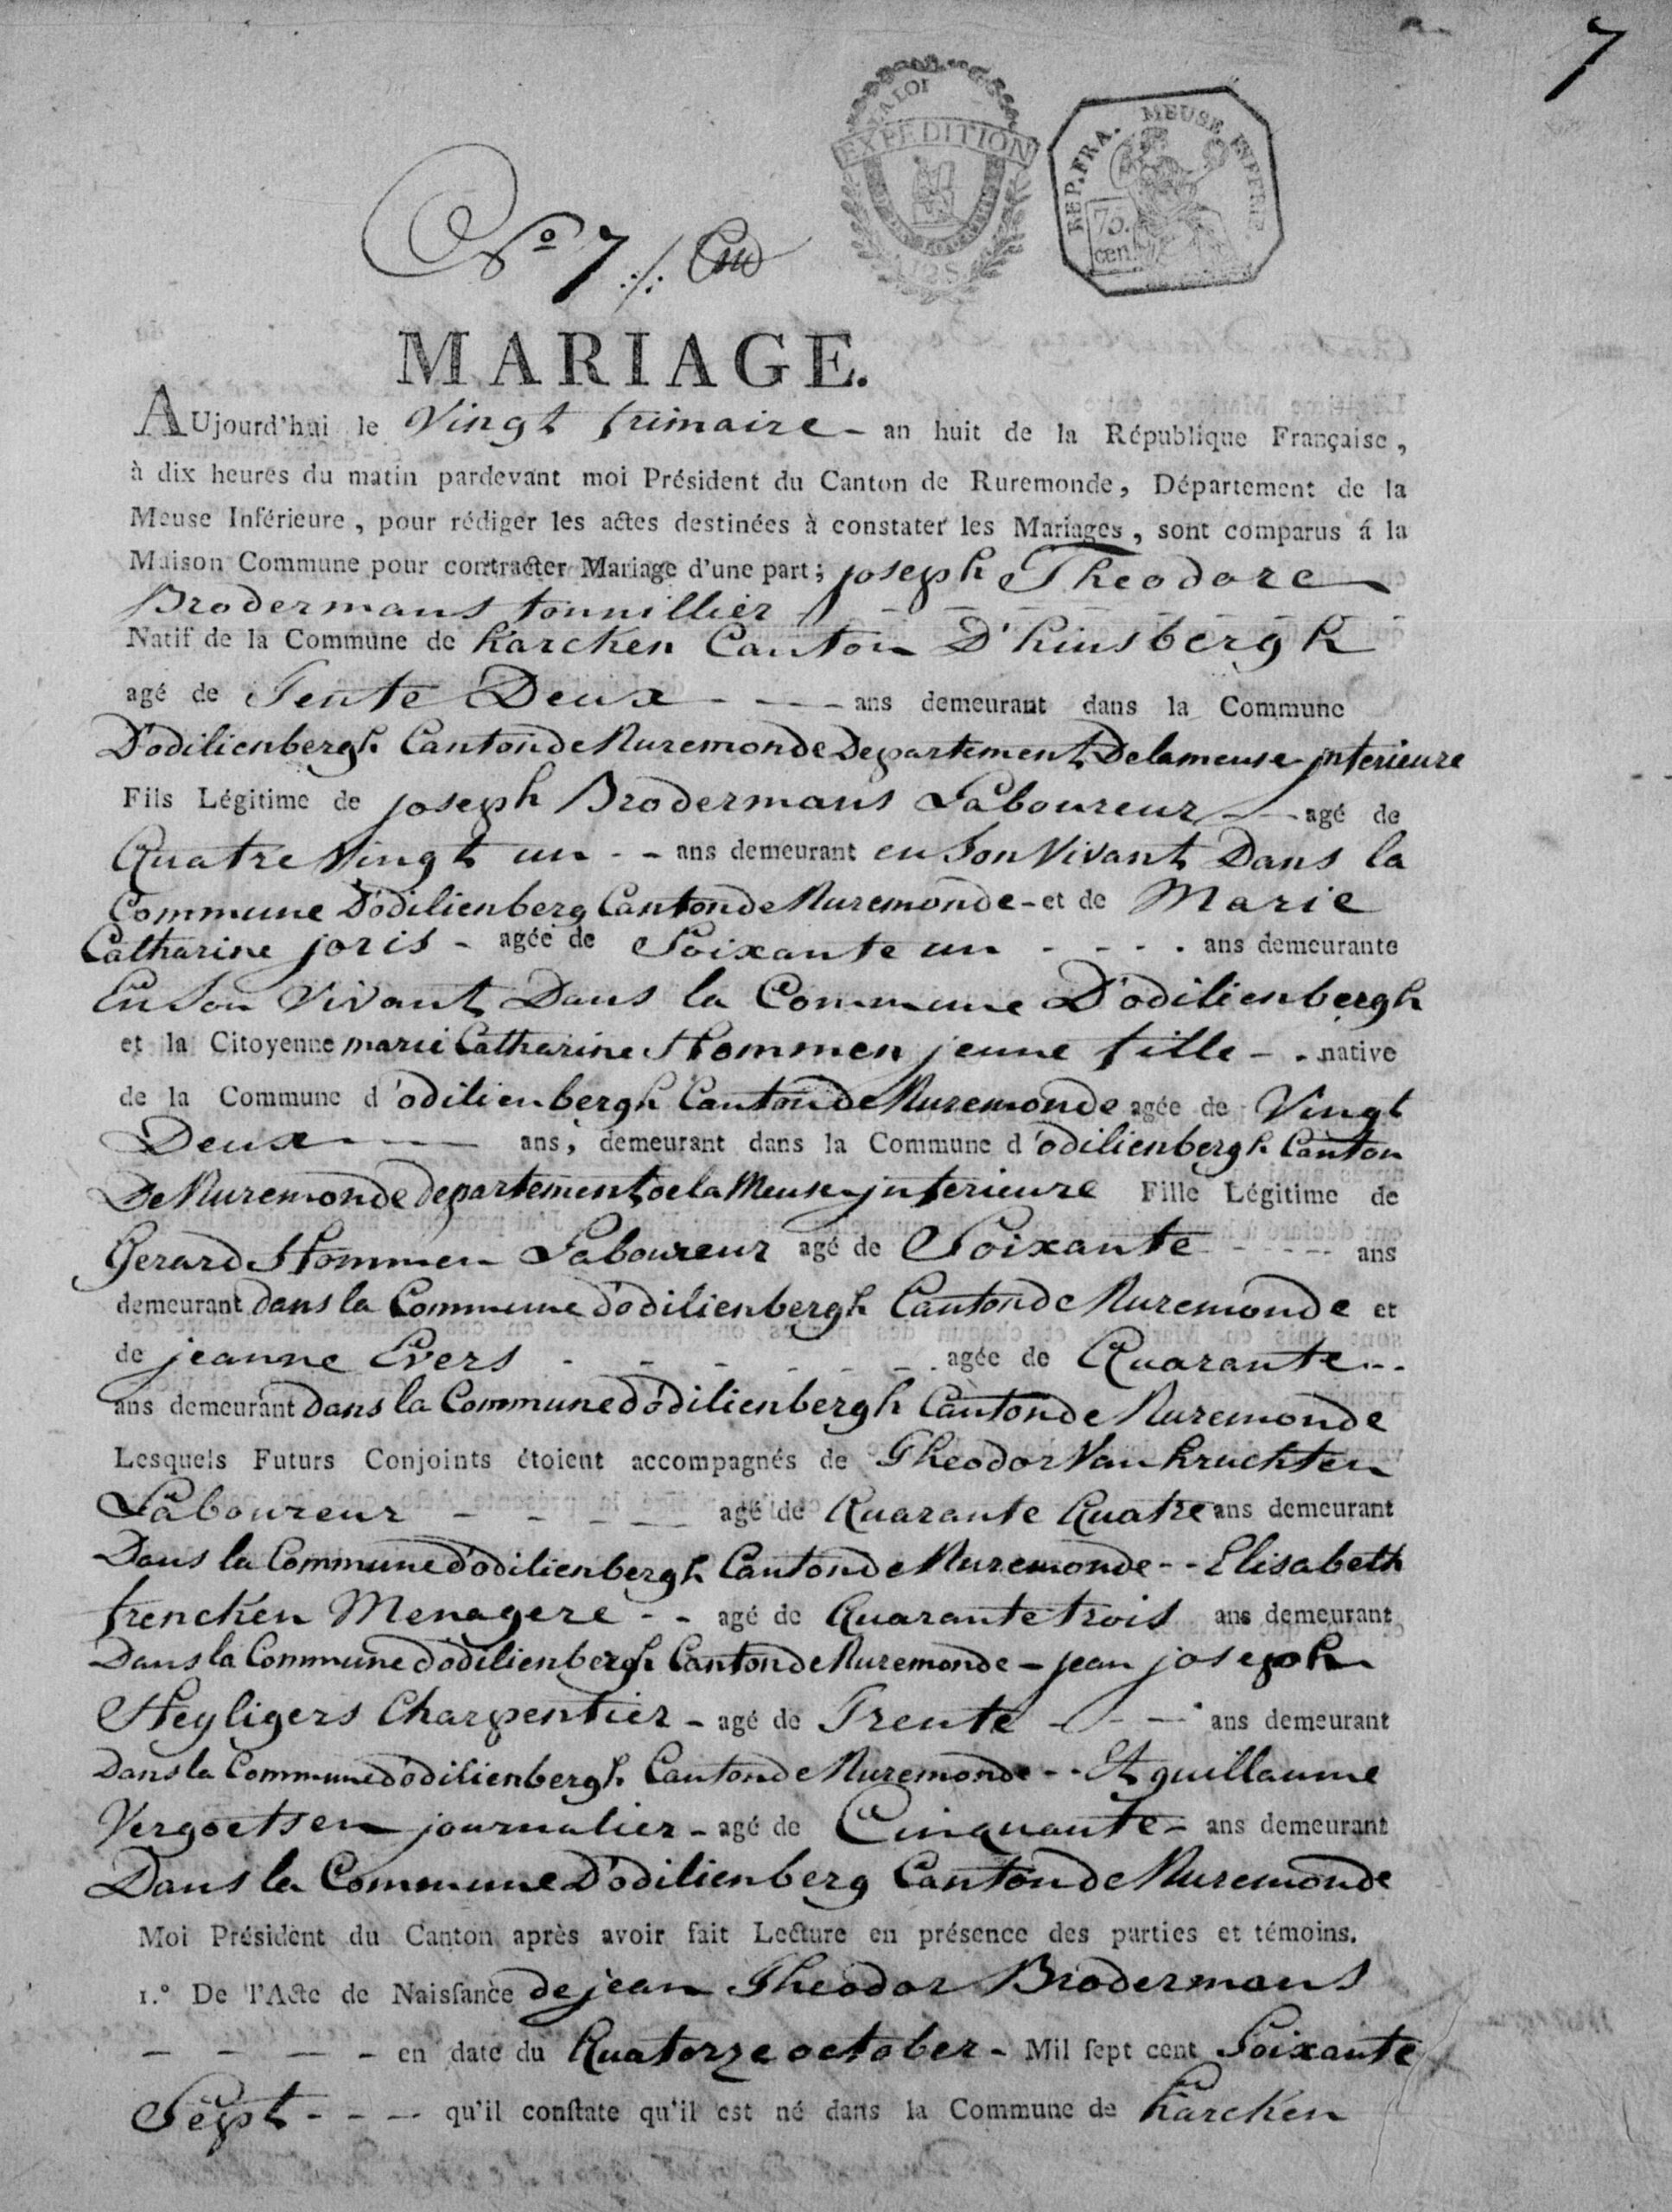 7
LA LOI
EXPEDITION
REP. FRA. MEUSE INFRE
75.
cen.
Nº 7 ./.
MARIAGE.
AUjourd'hui le Vingt frimaire - an huit de la République Française,
à dix heures du matin pardevant moi Président du Canton de Ruremonde, Département de la
Meuse Inférieure, pour rédiger les actes destinées à constater les Mariages, sont comparus á la
Maison Commune pour contracter Mariage d'une part; joseph Theodore
Brodermans tonnillier
Natif de la Commune de Karcken Canton D'hinsbergh
agé de Tente Deux - - - ans demeurant dans la Commune
D'odilienbergh Canton de Ruremonde Departement De la meuse jnferieure
Fils Légitime de joseph Brodermans Laboureur - - agé de
Quatre Vingt un - - ans demeurant en Son Vivant Dans la
Commune D'odilienberg Canton de Ruremonde - et de Marie
Catharine joris - agée de Soixante un - - - . ans demeurante
En Son Vivant Dans la Commune D'odilienbergh
et la Citoyenne marie Catharine Hommen jeune fille - . native
de la Commune d'odilienbergh Canton de Ruremonde agée de Vingt
Deux - - - ans, demeurant dans la Commune d'odilienbergh Canton
De Ruremonde departement de la Meuse jnferieure Fille Légitime de
Gerard Hommen Laboureur agé de Soixante - - - - ans
demeurant dans la Commune d'odilienbergh Canton de Ruremonde et
de jeanne Evers - - - - - - . agée de Quarante - -
ans demeurant dans la Commune d'odilienbergh Canton de Ruremonde
Lesquels Futurs Conjoints étoient accompagnés de Theodor Van Kruchten
Laboureur - - - - - agé de Quarante Quatre ans demeurant
Dans la Commune d'odilienbergh Canton de Ruremonde - - Elisabeth
frencken Menagere - - agé de Quarante trois ans demeurant
Dans la Commune d'odilienbergh Canton de Ruremonde - jean joseph
Heyligers Charpentier - agé de Trente - - - ans demeurant
Dans la Commune d'odilienbergh Canton de Ruremonde - - Et guillaume
Vergoetsen journalier - agé de Cinquante - ans demeurant
Dans la Commune D'odilienberg Canton de Ruremonde
Moi Président du Canton après avoir fait Lecture en présence des parties et témoins.
1.° De l'Acte de Naiſsance de jean Theodor Brodermans
- - - - en date du Quatorze october - Mil ſept cent Soixante
Sept - - - qu'il conſtate qu'il est né dans la Commune de Karcken